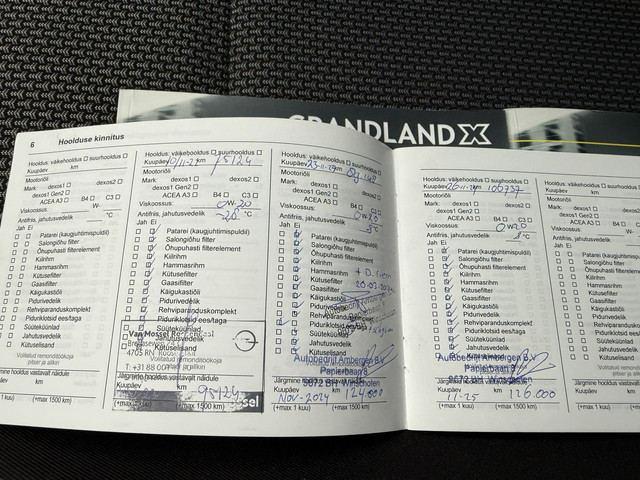 GRANDLAND X
6 Hoolduse kinnitus
Hooldus: väikehooldus suurhooldus
Kuupäev km
Mootoriõli
Mark: dexos1 dexos2
dexos1 Gen2
ACEA A3 B4 C3
Viskoossus: W-
Antifriis, jahutusvedelik °C
Jah Ei
Patarei (kaugjuhtimispuldil)
Salongiõhu filter
Õhupuhasti filterelement
Kiilrihm
Hammasrihm
Kütusefilter
Gaasifilter
Käigukastiõli
Pidurivedelik
Rehviparanduskomplekt
Piduriklotsid ees/taga
Süüteküünlad
Jahutusvedelik
Kütuselisand
Volitatud remonditöökoja
pitser ja allkiri
Järgmine hooldus vastavalt näidule
Kuupäev km
(+max 1 kuu) (+max 1500 km)
Hooldus: väikehooldus suurhooldus
Kuupäev km
Mootoriõli
Mark: dexos1 dexos2
dexos1 Gen2
ACEA A3 B4 C3
Viskoossus: 0W-20
Antifriis, jahutusvedelik °C
Jah Ei
Patarei (kaugjuhtimispuldil)
Salongiõhu filter
Õhupuhasti filterelement
Kiilrihm
Hammasrihm
Kütusefilter
Gaasifilter
Käigukastiõli
Pidurivedelik
Rehviparanduskomplekt
Piduriklotsid ees/taga
Süüteküünlad
Jahutusvedelik
Kütuselisand
Van Mossel
4705 RN
Järgmine hooldus vastavalt näidule
95124
(+max 1 kuu) (+max 1500 km)
Hooldus: väikehooldus suurhooldus
Kuupäev 23-11-23 km
Mootoriõli
Mark: dexos1 dexos2
dexos1 Gen2
ACEA A3 B4 C3
Viskoossus: 0W20
Antifriis, jahutusvedelik °C
Jah Ei
Patarei (kaugjuhtimispuldil)
Salongiõhu filter
Õhupuhasti filterelement
Kiilrihm
Hammasrihm
Kütusefilter
Gaasifilter
Käigukastiõli
Pidurivedelik
Rehviparanduskomplekt
Piduriklotsid
Süüteküünlad
Jahutusvedelik
Kütuselisand
Autobedrijf Ambergen B.V.
Papierbaan 8
9672 BH Winschoten
Järgmine
Kuupäev km
Nov-2024 124.000
(+max 1 kuu) (+max 1500 km)
Hooldus: väikehooldus suurhooldus
Kuupäev km 106737
Mootoriõli
Mark: dexos1 dexos2
dexos1 Gen2
ACEA A3 B4 C3
Viskoossus: 0W20
Antifriis, jahutusvedelik °C
Jah Ei
Patarei (kaugjuhtimispuldil)
Salongiõhu filter
Õhupuhasti filterelement
Kiilrihm
Hammasrihm
Kütusefilter
Gaasifilter
Käigukastiõli
Pidurivedelik
Rehviparanduskomplekt
Piduriklotsid ees/taga
Süüteküünlad
Jahutusvedelik
Kütuselisand
Autobedrijf Ambergen B.V.
Papierbaan 8
9672 BH Winschoten
Järgmine
Kuupäev km
11-25 126.000
(+max 1 kuu) (+max 1500 km)
Hooldus: väikehooldus
Kuupäev
Mootoriõli
Mark: dexos1
dexos1 Gen2
ACEA A3
Viskoossus:
Antifriis, jahutusvedelik
Jah Ei
Patarei (kaugjuhtimispuldil)
Salongiõhu filter
Õhupuhasti filterelement
Kiilrihm
Hammasrihm
Kütusefilter
Gaasifilter
Käigukastiõli
Pidurivedelik
Rehviparanduskomplekt
Piduriklotsid ees/taga
Süüteküünlad
Jahutusvedelik
Kütuselisand
Järgmine hooldus vastavalt
Kuupäev
(+max 1 kuu) (+max 1500 km)